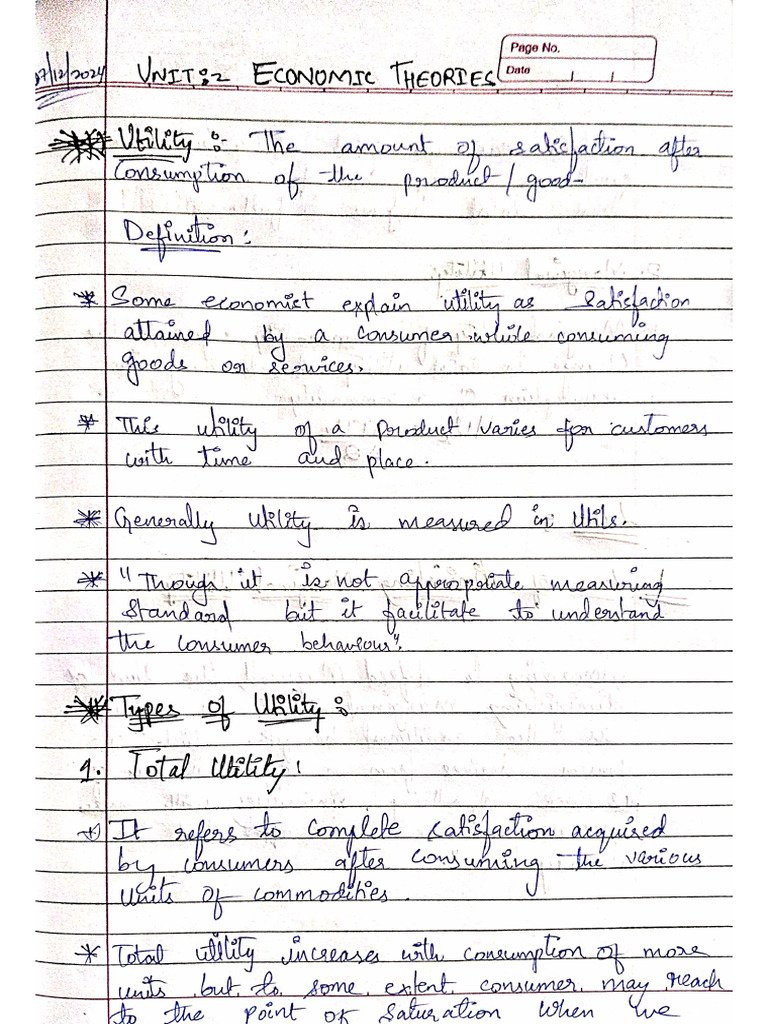 Page No.
Date
07/12/2024 UNIT:2 ECONOMIC THEORIES
Utility :- The amount of satisfaction after
Consumption of the product / good-
Definition :
* Some economist explain utility as satisfaction
attained by a consumer while consuming
goods or services.
* This utility of a product varies for customers
with time and place.
* Generally Utility is measured in Utils.
* "Though it is not appropriate measuring
standard but it facilitate to understand
the consumer behaviour".
Types of Utility :
1. Total Utility :
* It refers to complete satisfaction acquired
by consumers after consuming the various
units of commodities.
* Total utility increases with consumption of more
units but to some extent consumer may reach
to the point of saturation when we